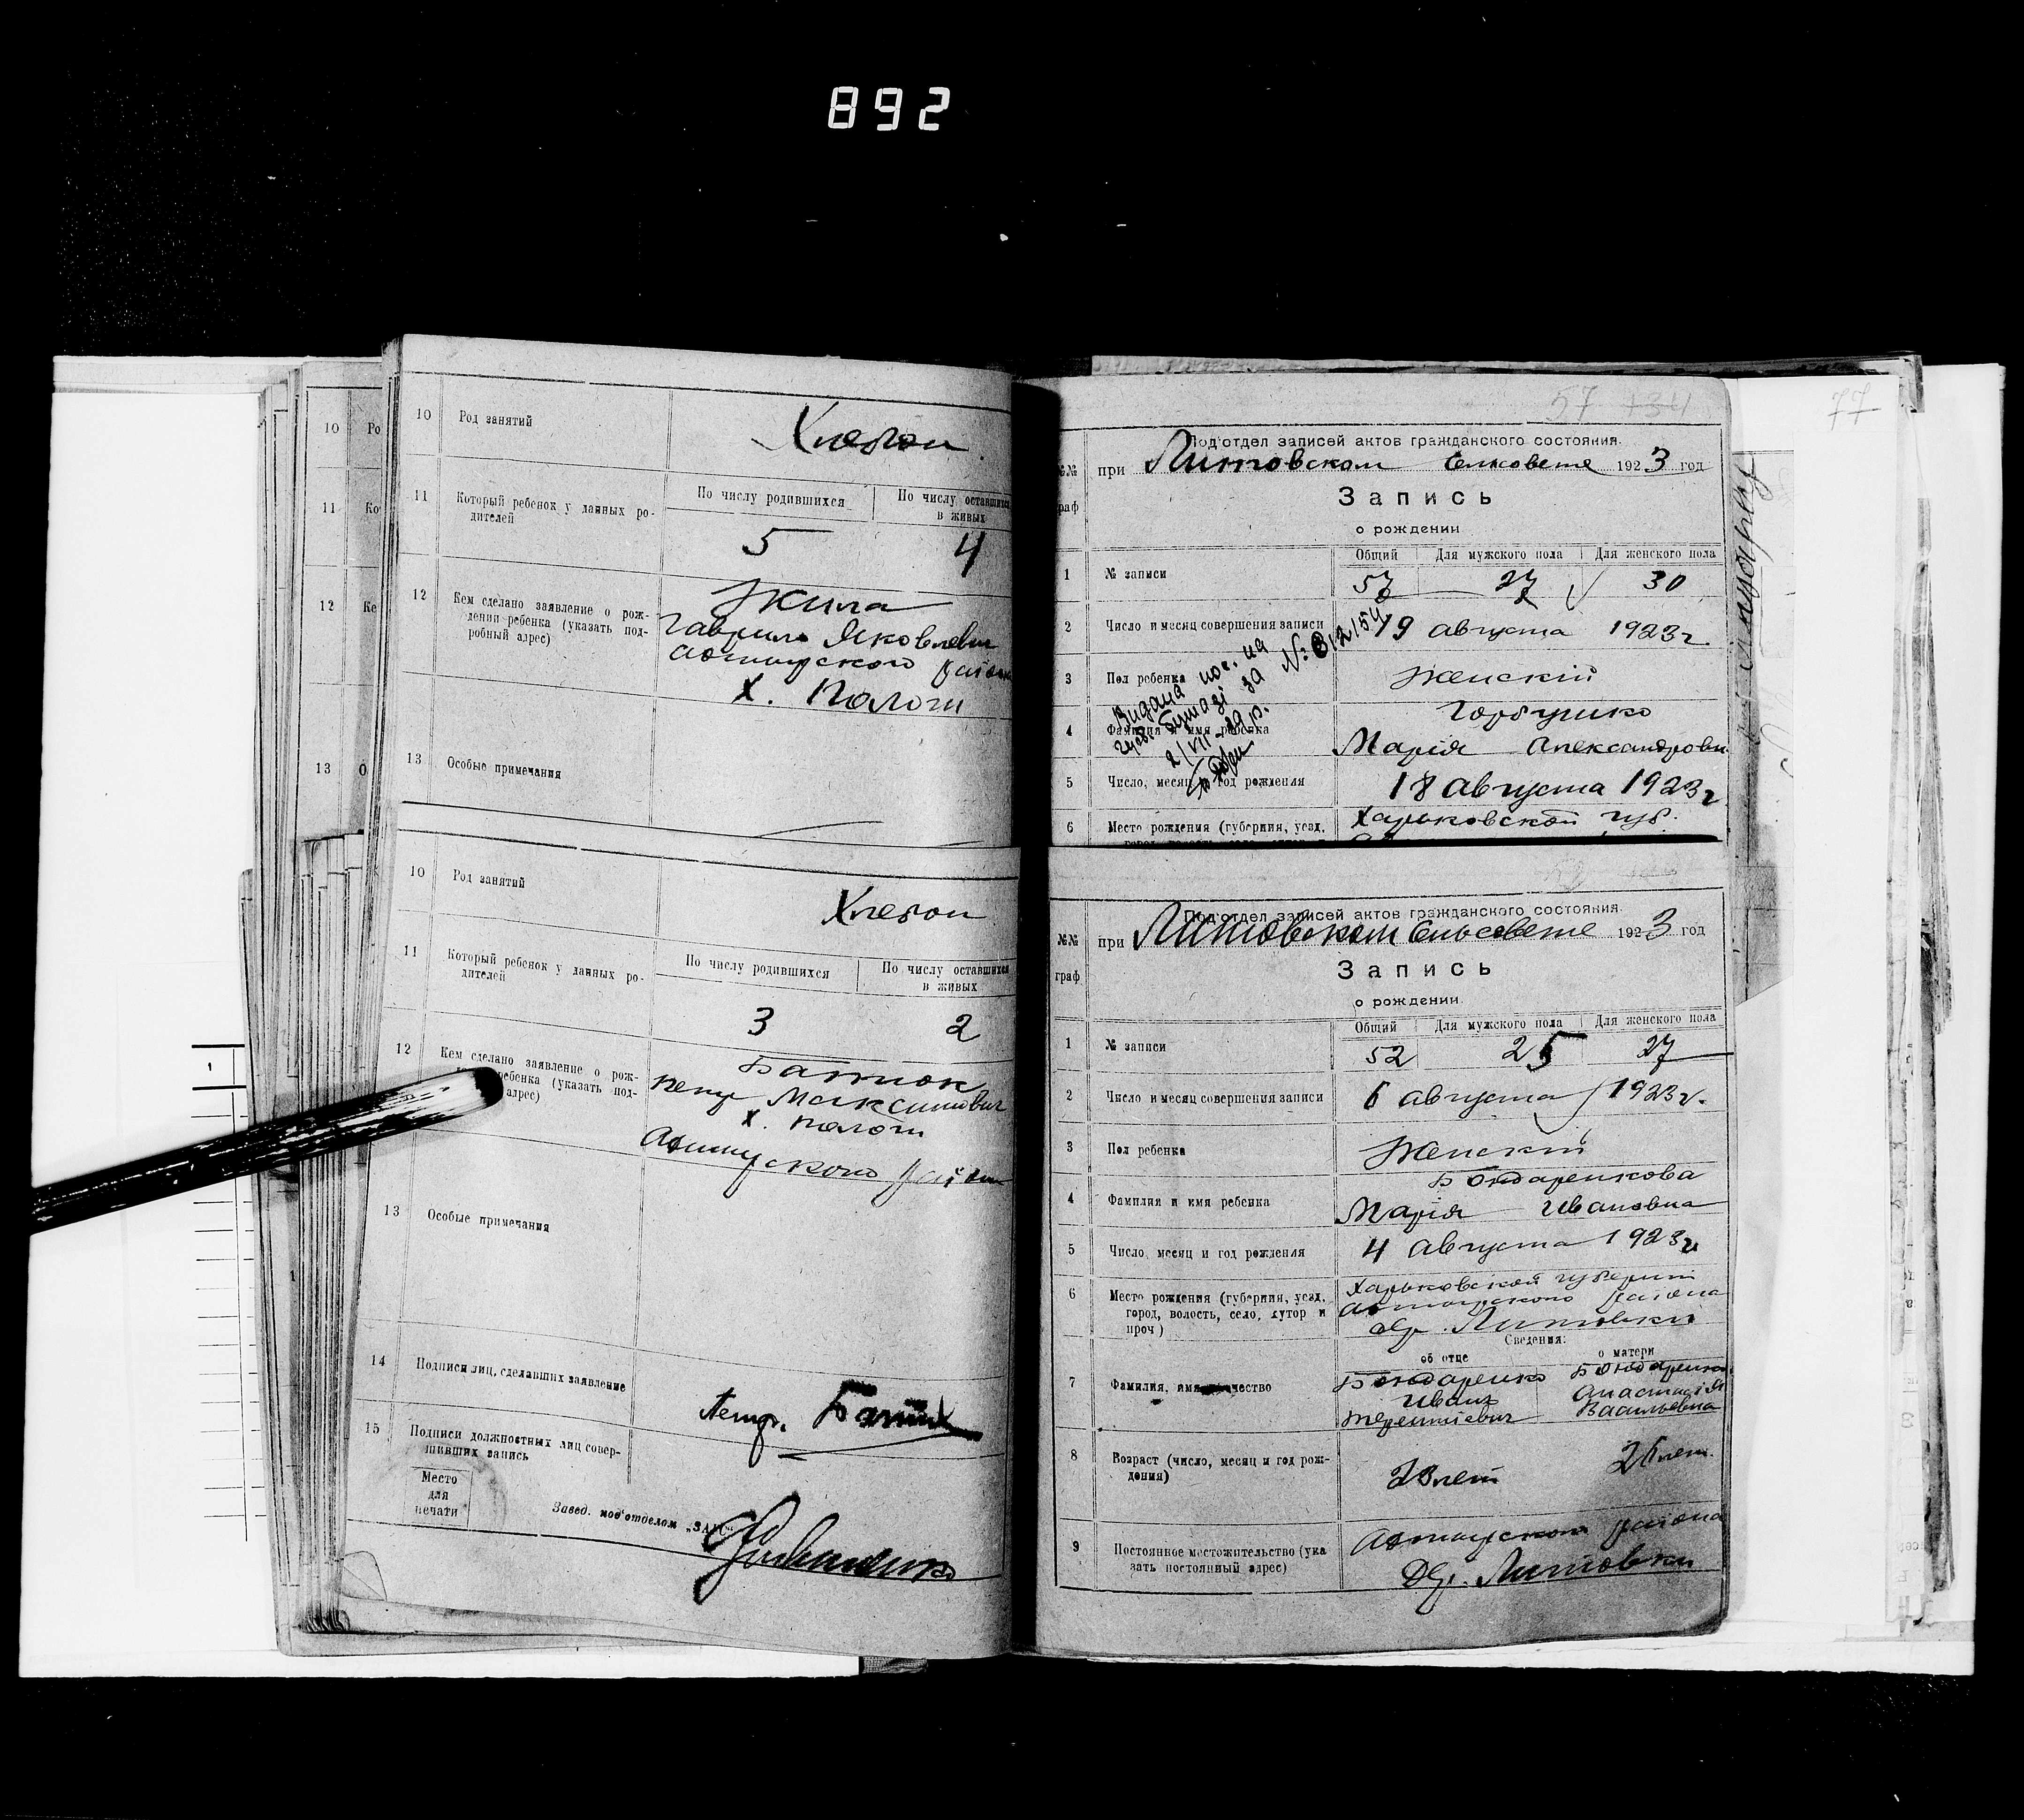 892
10 Род занятий Хлебоп.
11 Который ребенок у данных ро-
дителей
По числу родившихся По числу оставшихся
в живых
5 4
12 Кем сделано заявление о рож-
дении ребенка (указать под-
робный адрес)
Жила
Гаврило Яковлевич
Ахтырского района
х. Пологи
13 Особые примечания
10 Род занятий Хлебоп
11 Который ребенок у данных ро-
дителей
По числу родившихся По числу оставшихся
в живых
3 2
12 Кем сделано заявление о рож-
ребенка (указать под-
адрес)
Батюк
Петр Максимович
х. Пологи
Ахтырского района
13 Особые примечания
14 Подписи лиц, сделавших заявление
Петр. Батюк
15 Подписи должностных лиц совер-
шивших запись
Место
для
печати
Завед. под'отделом „ЗАГС“
10 Ро
11 Ко
12 Ке
13 О
77
57 134
Под'отдел записей актов гражданского состояния.
при Литовском Сельсовете 1923 год
№№
граф
Запись
о рождении
Общий Для мужского пола Для женского пола
1 № записи 57 27 30
2 Число и месяц совершения записи 19 августа 1923 г.
3 Пол ребенка Женскій
4 Фамилия и имя ребенка
Горбунко
Марія Александровн
5 Число, месяц и год рождения 18 августа 1923 г
6 Место рождения (губерния, уезд,
Харьковской губ.
Видана пос. на
бумазі за № 312154
2/VII-29 р.
Под'отдел записей актов гражданского состояния.
при Литовском Сельсовете 1923 год
№№
граф
Запись
о рождении
Общий Для мужского пола Для женского пола
1 № записи 52 25 27
2 Число и месяц совершения записи 6 августа 1923 г.
3 Пол ребенка Женскій
4 Фамилия и имя ребенка
Бондаренкова
Марія Ивановна
5 Число, месяц и год рождения 4 августа 1923 г
6 Место рождения (губерния, уезд,
город, волость, село, хутор и
проч)
Харьковской губернии
Ахтырского района
др. Литовки
Сведения:
об отце о матери
7 Фамилия, имя отчество
Бондаренко
Иван
Терентиевич
Бондаренко
Анастасія
Васильевна
8 Возраст (число, месяц и год рож-
дения)
23 лет 26 лет.
9 Постоянное местожительство (ука
зать постоянный адрес)
Ахтырского района
Др. Литовки